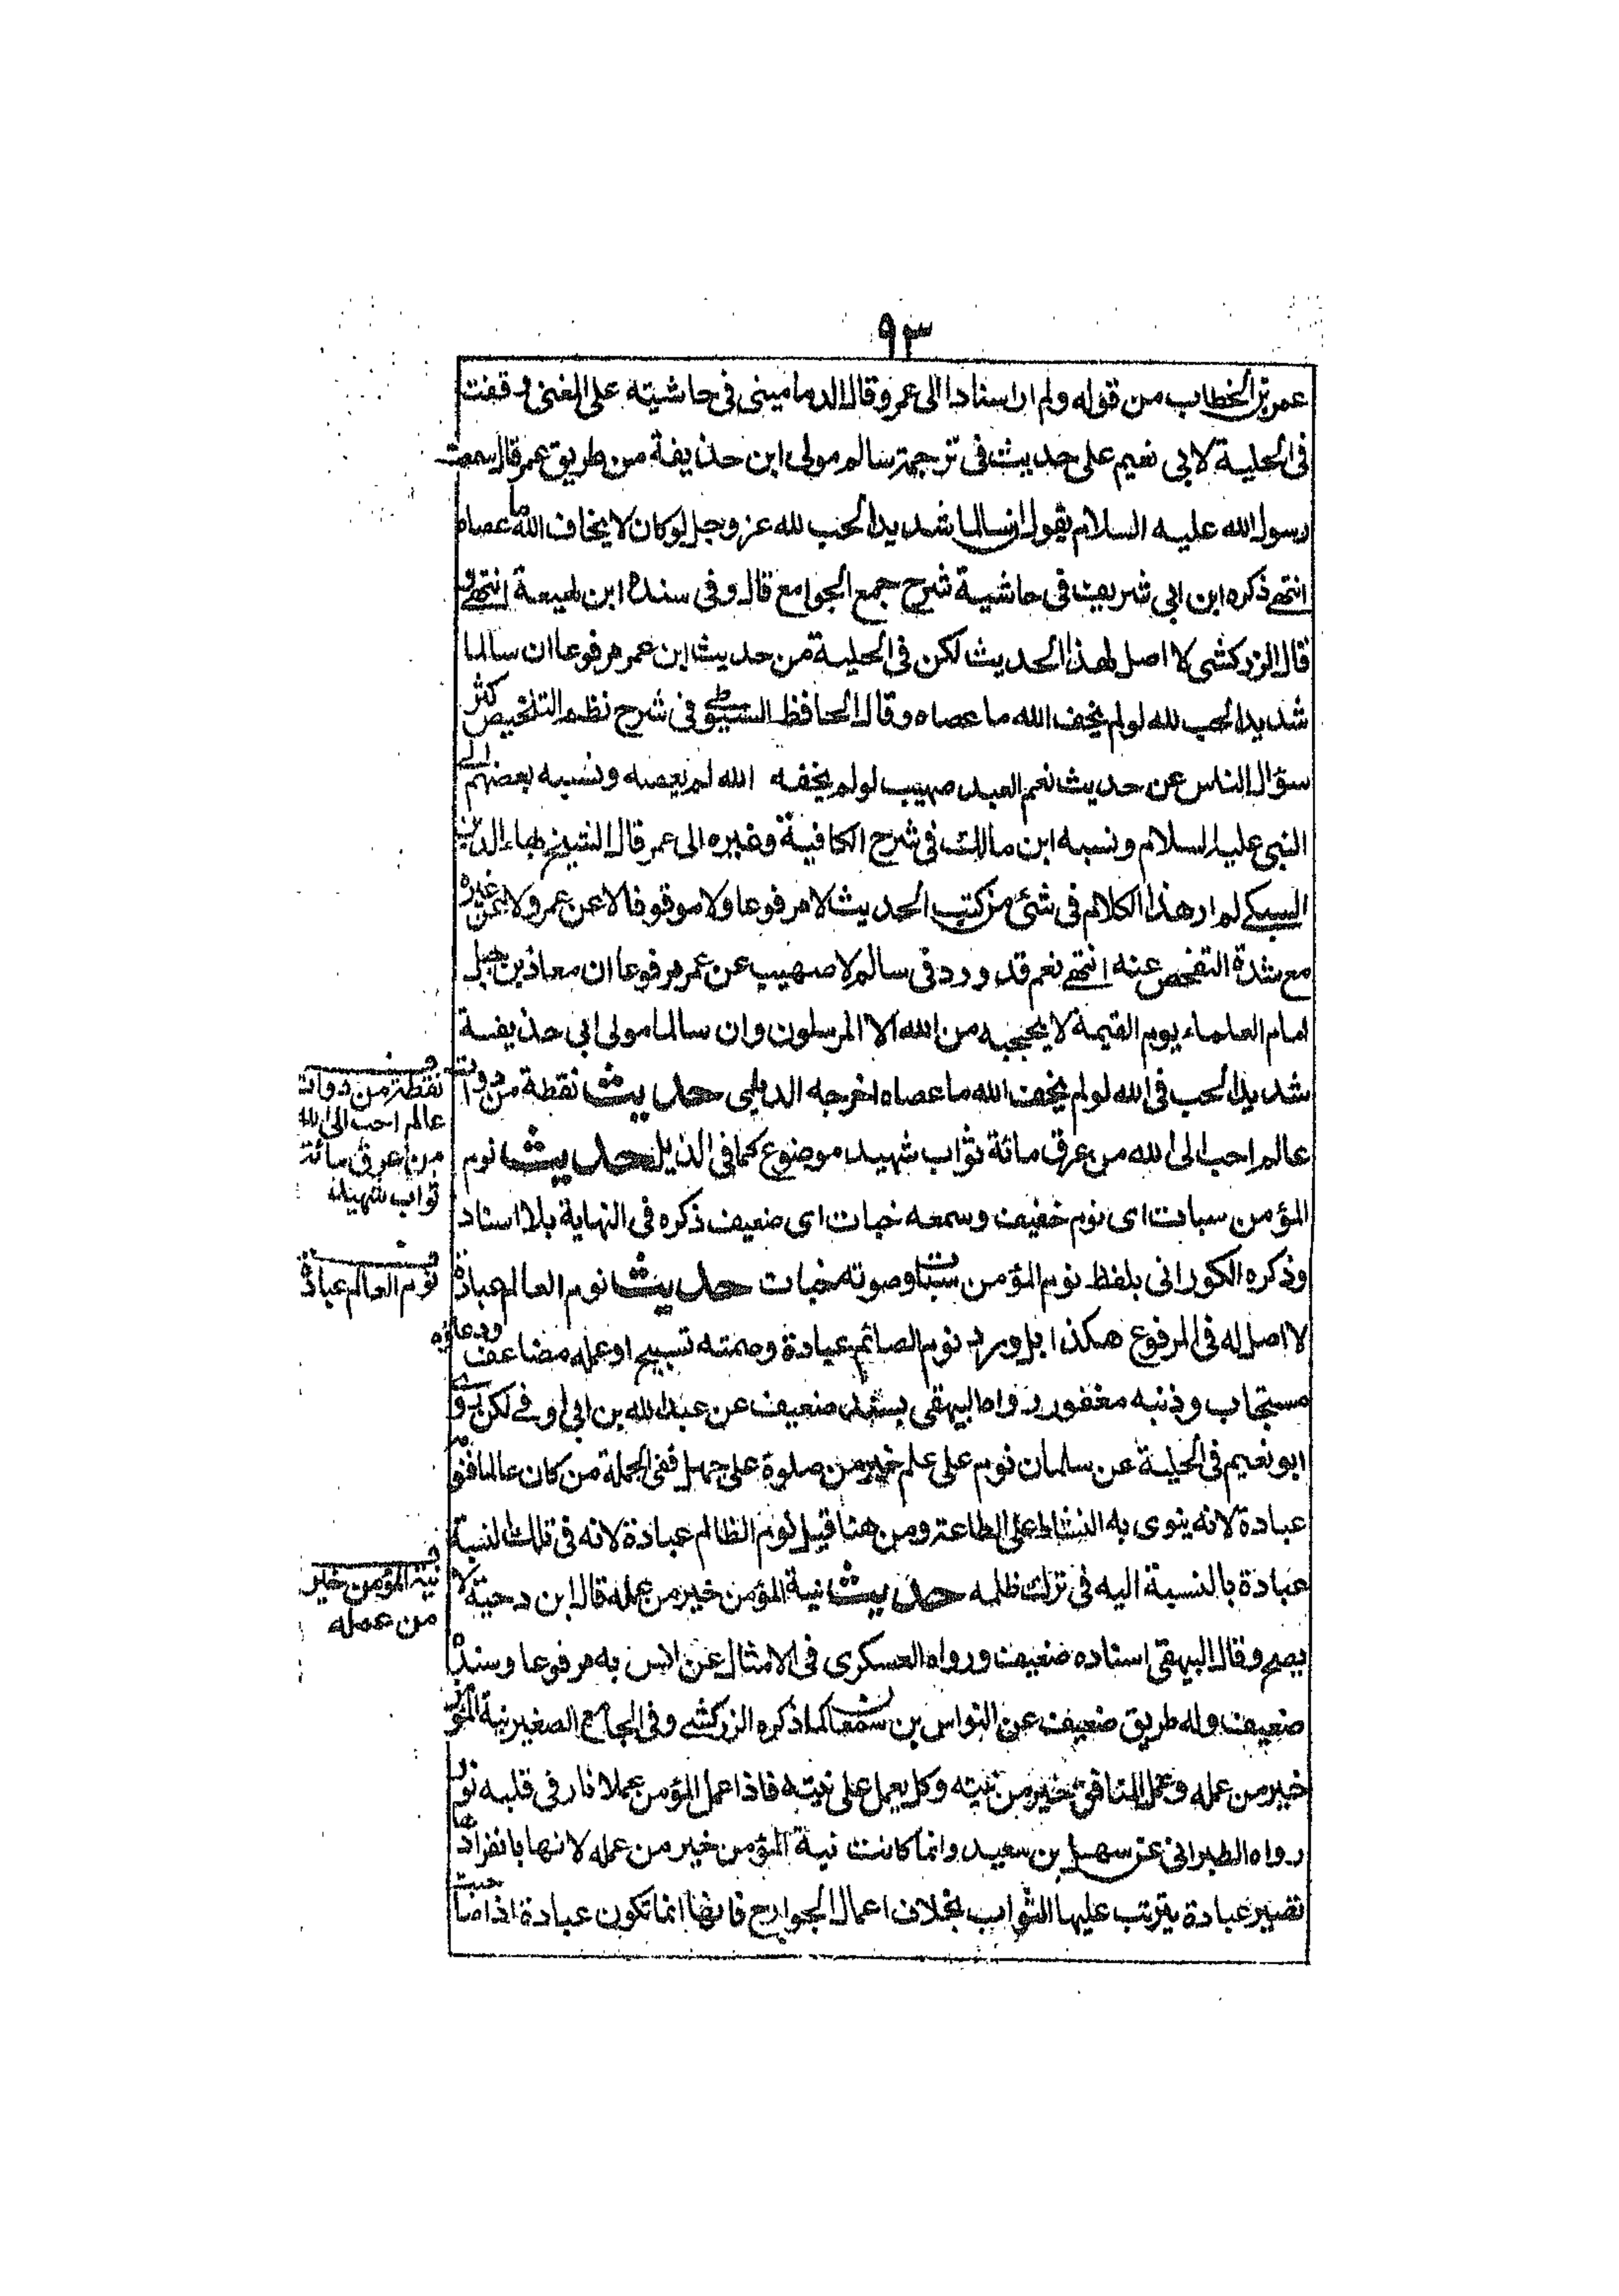 ٩٣
عمر بن الخطاب من قوله ولم ار اسنادا الى عمر وقال الدماميني في حاشيته على المغني وقفت
في الحلية لابي نعيم على حديث في ترجمة سالم مولى ابن حذيفة من طريق عمر قال سمعت
رسول الله عليه السلام يقول ان سالما شديد الحب لله عز وجل لو كان لا يخاف الله ما عصاه
انتهى ذكره ابن ابي شريف في حاشية شرح جمع الجوامع قال وفي سنده ابن لهيعة انتهى و
قال الزركشي لا اصل لهذا الحديث لكن في الحلية من حديث ابن عمر مرفوعا ان سالما
شديد الحب لله لو لم يخف الله ما عصاه وقال الحافظ السيوطي في شرح نظم التلخيص كثر
سؤال الناس عن حديث نعم العبد صهيب لو لم يخفه الله لم يعصه ونسبه بعضهم الى
النبي عليه السلام ونسبه ابن مالك في شرح الكافية وغيره الى عمر قال الشيخ بهاء الدين
السبكي لم ار هذا الكلام في شئ من كتب الحديث لا مرفوعا ولا موقوفا لا عن عمر ولا عن غيره
مع شدة التفحص عنه انتهى نعم قد ورد في سالم لا صهيب عن عمر مرفوعا ان معاذ بن جبل
امام العلماء يوم القيمة لا يحجبه من الله الا المرسلون وان سالما مولى ابي حذيفة
شديد الحب في الله لو لم يخف الله ما عصاه اخرجه الديلمي حديث نقطة من دوات
عالم احب الى الله من عرق مائة ثواب شهيد موضوع كما في الذيل حديث نوم
المؤمن سبات اى نوم خفيف وسمعه خبات اى ضعيف ذكره في النهاية بلا اسناد
وذكره الكوراني بلفظ نوم المؤمن سبات وصوته خبات حديث نوم العالم عبادة
لا اصل له في المرفوع هكذا بل ورد نوم الصائم عبادة وصمته تسبيح او عمله مضاعف ودعاؤه
مستجاب وذنبه مغفور رواه البيهقي بسند ضعيف عن عبد الله بن ابي اوفى لكن روى
ابو نعيم في الحلية عن سلمان نوم على علم خير من صلوة على جهل ففي الجملة من كان عالما فنومه
عبادة لانه ينوى به النشاط على الطاعة ومن هنا قيل نوم الظالم عبادة لانه في تلك النسبة
عبادة بالنسبة اليه في ترك ظلمه حديث نية المؤمن خير من عمله قال ابن دحية لا
يصح وقال البيهقي اسناده ضعيف ورواه العسكرى في الامثال عن انس به مرفوعا وسنده
ضعيف وله طريق ضعيف عن النواس بن سمعان كما ذكره الزركشي وفي الجامع الصغير نية المؤمن
خير من عمله وعمل المنافق خير من نيته وكل يعمل على نيته فاذا عمل المؤمن عملا نار في قلبه نور
رواه الطبراني عن سهل بن سعيد وانما كانت نية المؤمن خير من عمله لانها بانفرادها
تصير عبادة يترتب عليها الثواب بخلاف اعمال الجوارح فانها انما تكون عبادة اذا صاحبت
نقطة من دوات
عالم احب الى الله
من عرق مائة
ثواب شهيد
نوم العالم عبادة
نية المؤمن خير
من عمله